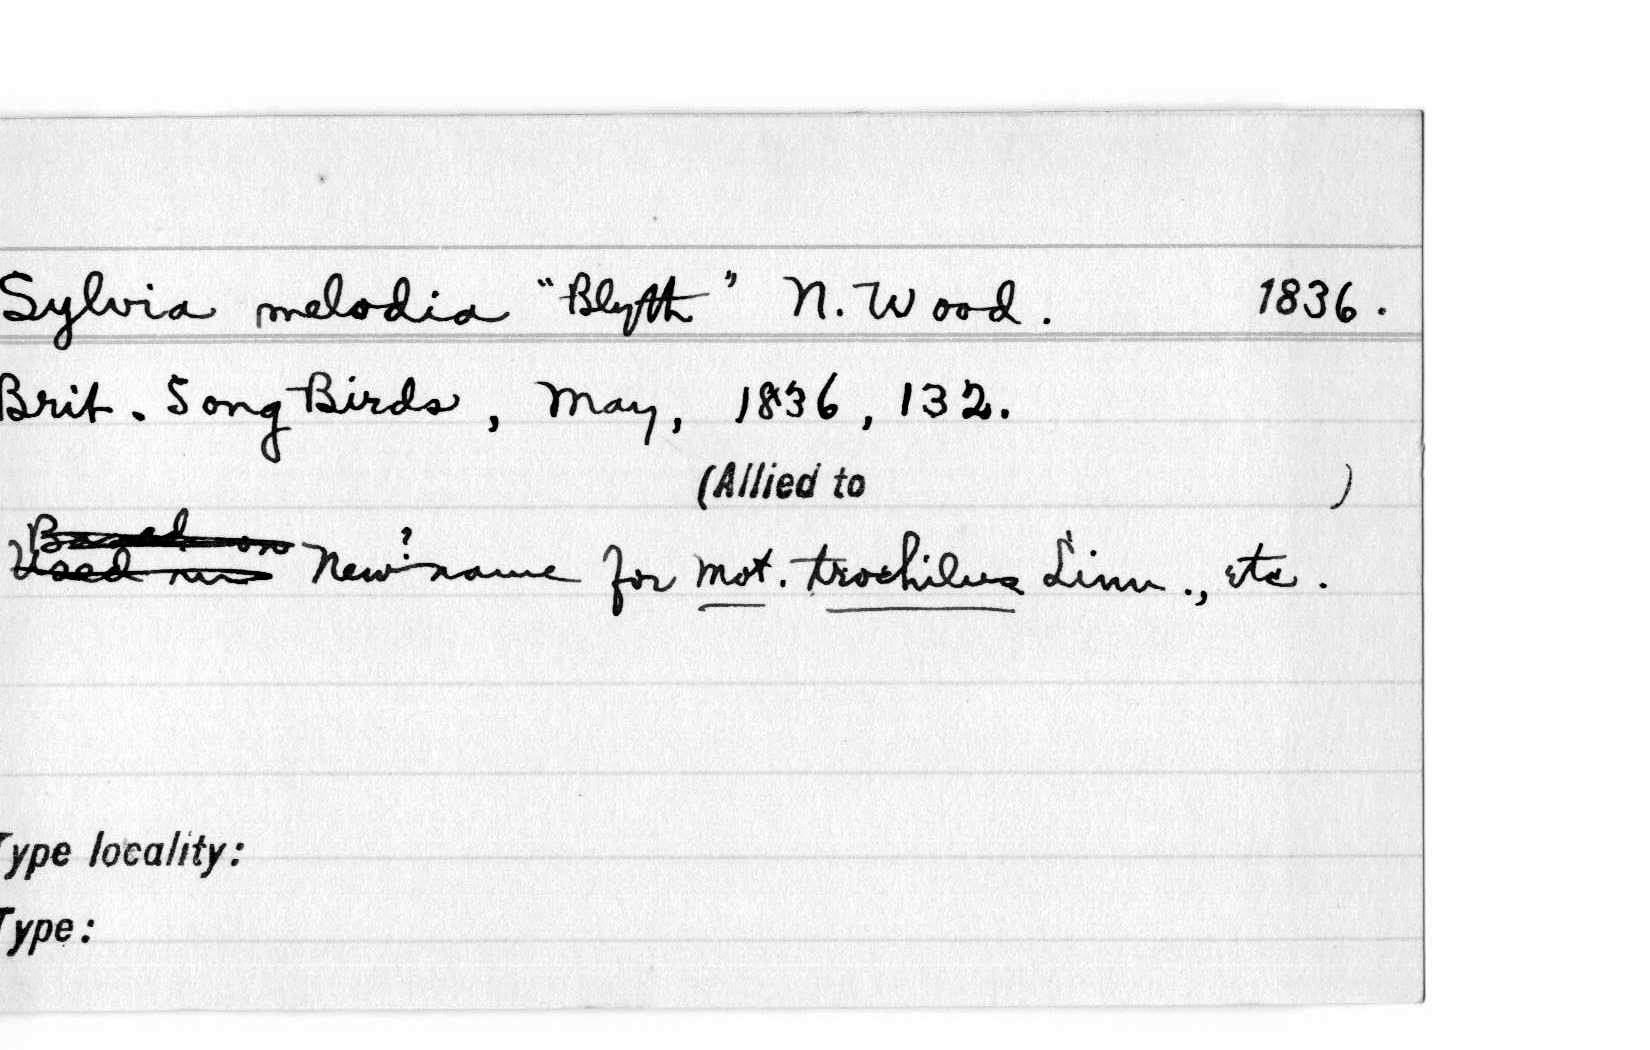 Sylvia melodia "Blyth" N. Wood. 1836.
Brit. Song Birds, May, 1836, 132.
(Allied to )
Based on
Used in New? name for Mot. trochilus Linn., etc.
Type locality:
Type: